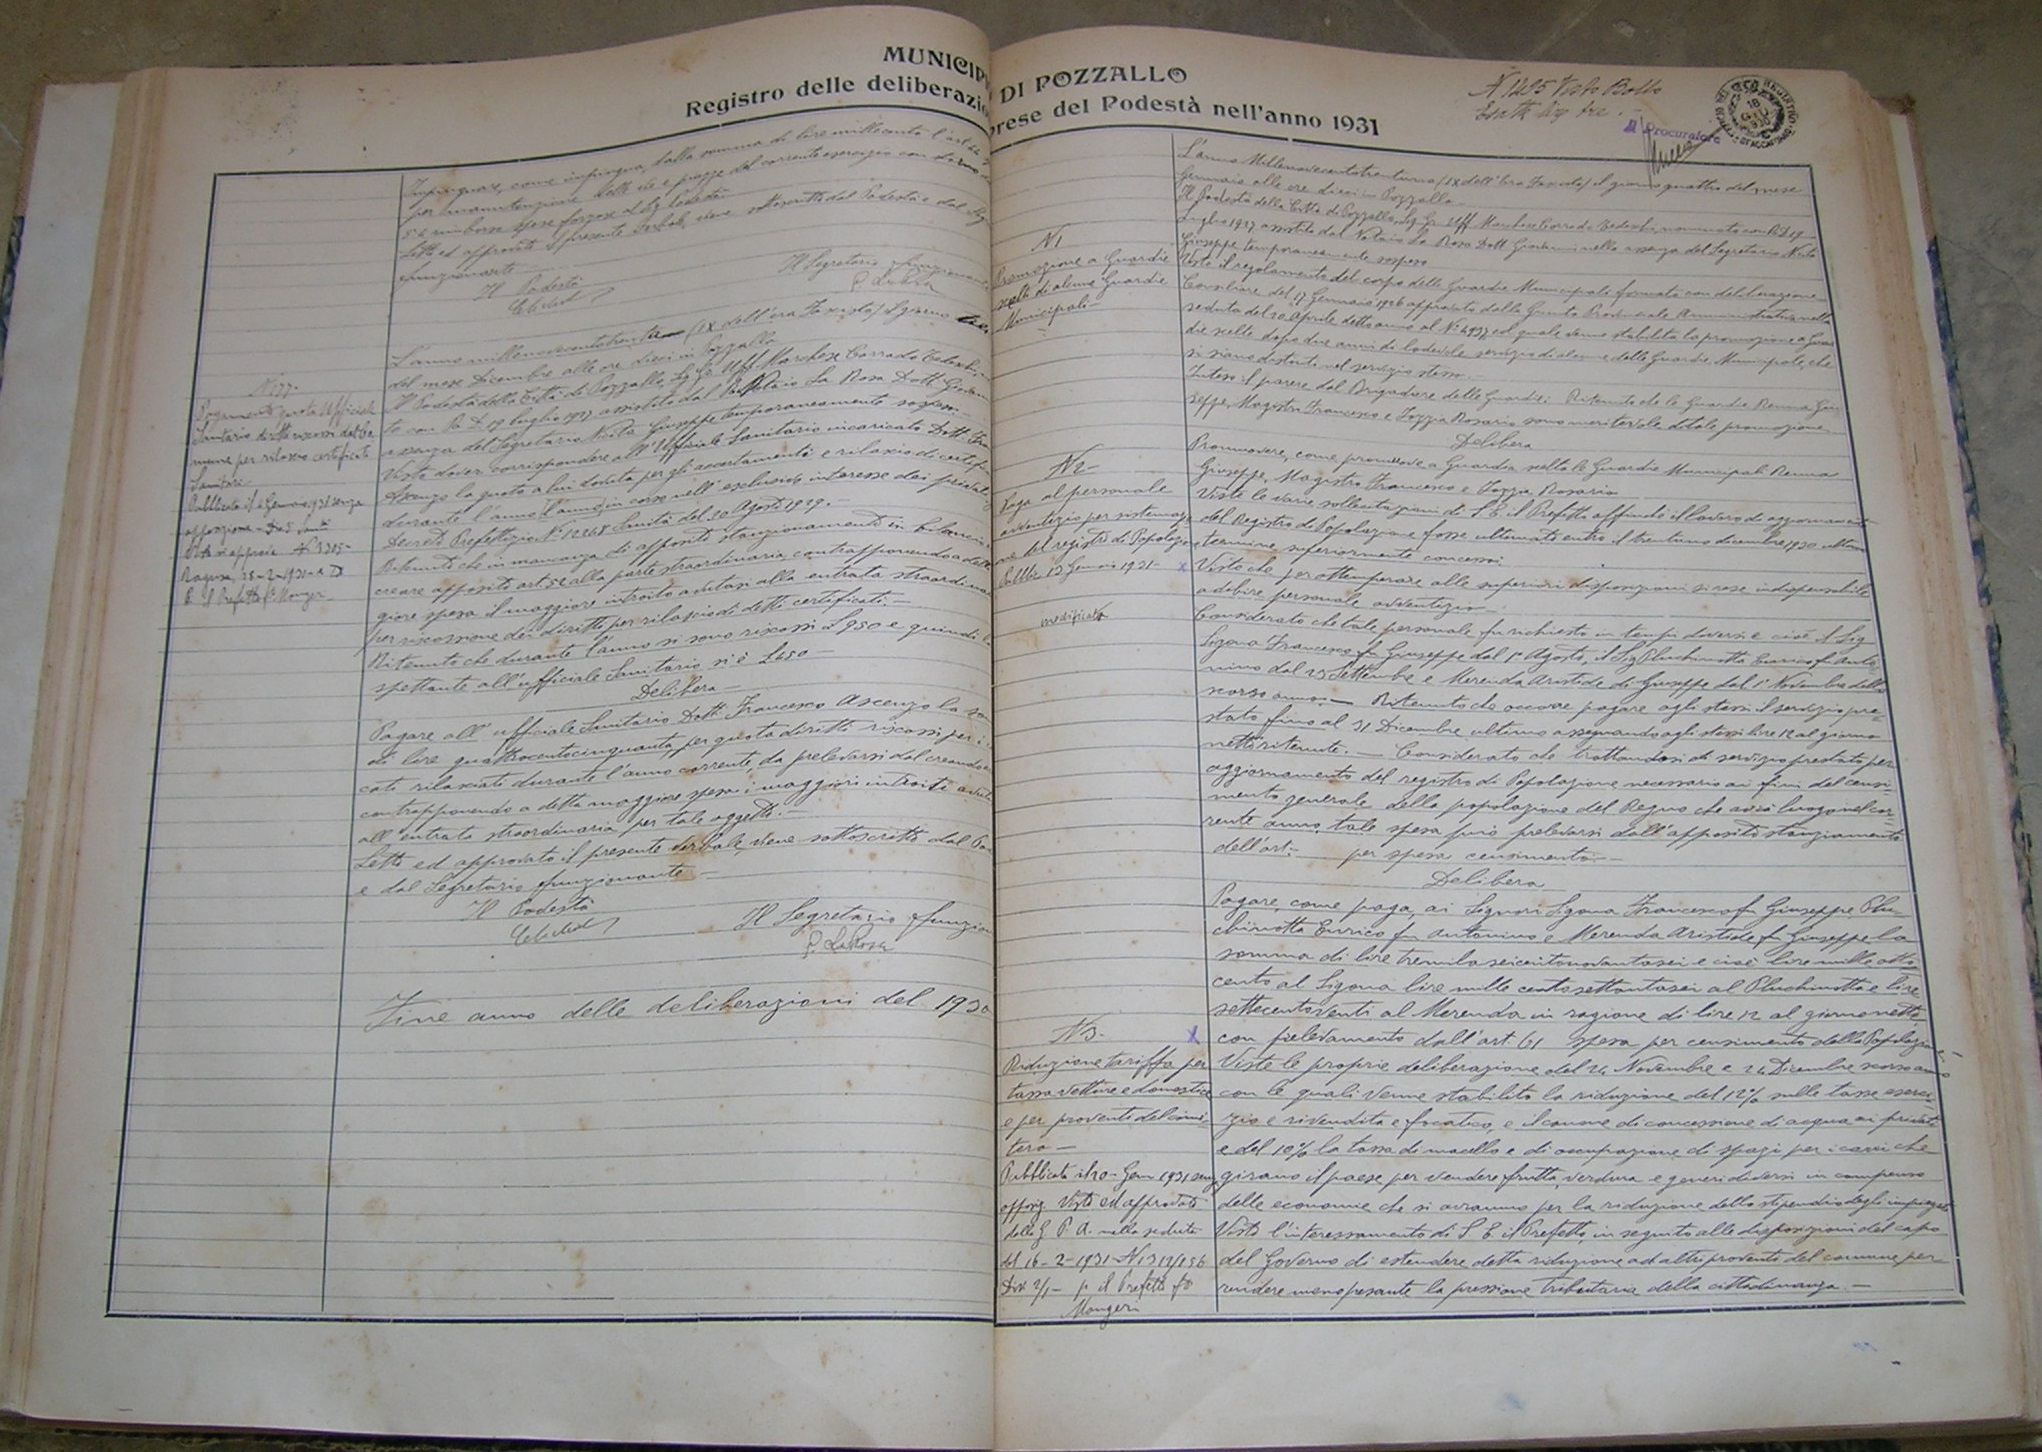 MUNICIPI DI POZZALLO
Registro delle deliberazio prese del Podestà nell'anno 1931
Impinguare, come impingua, della somma di lire millecento l'art.
per manutenzione delle vie e piazze del corrente esercizio con
rimborso spese forzose
Letto ed approvato il presente verbale, viene sottoscritto dal Podestà e dal Seg
funzionante
Il Podestà
Il Segretario funzionante
L'anno millenovecentotrenta (IX dell'era Fascista) il giorno
del mese Dicembre alle ore dieci in Pozzallo
Il Podestà della Città di Pozzallo, Sig. Gr. Uff. Marchese Corrado Tedeschi,
to con R. D. 19 luglio 1927 assistito dal Notaio La Rosa Dott. Giovanni
assenza del Segretario Giuseppe temporaneamente sospeso
Visto dover corrispondere all'Ufficiale Sanitario incaricato Dott. Fra
Ascenzo la quota a lui dovuta per gli accertamenti e rilascio di certifi
durante l'anno in corso nell'esclusivo interesse dei privati,
Decreto Prefettizio N° 12268 Sanità del 20 Agosto 1929.-
Ritenuto che in mancanza di apposito stanziamento in bilancio
creare apposito art. 52 alla parte straordinaria contrapponendo a detta
giore spesa il maggiore introito avutosi alla entrata straordina
per riscossione dei diritti per rilascio di detti certificati.-
Ritenuto che durante l'anno si sono riscossi £ 950 e quindi
spettante all'ufficiale Sanitario si è £ 450 -
Delibera -
Pagare all'ufficiale Sanitario Dott. Francesco Ascenzo la so
di lire quattrocentocinquanta, per quota diritti riscossi per i
cati rilasciati durante l'anno corrente, da prelevarsi dal creando
contrapponendo a detta maggiore spesa i maggiori introiti avuti
all'entrata straordinaria per tale oggetto.-
Letto ed approvato il presente verbale, viene sottoscritto dal Po
e dal Segretario funzionante -
Il Podestà
Il Segretario funzio
P. La Rosa
Fine anno delle deliberazioni del 1930
Pagamento quota Ufficiale
Sanitario diritti riscossi dal Co
mune per rilascio certificati
Sanitari
Pubblicato il 6 Gennaio 931 senza
opposizione
Ragusa, 28-2-1931-A IX
Il Prefetto
N. 1295 Visto Bollo
Esatte
Il Procuratore
L'anno Millenovecentotrentuno (IX dell'Era Fascista) il giorno quattro del mese
Gennaio alle ore dieci in Pozzallo
Il Podestà della Città di Pozzallo, Sig. Gr. Uff. Marchese Corrado Tedeschi, nominato con R.D. 19
Luglio 1927 assistito dal Notaio La Rosa Dott. Giovanni nella assenza del Segretario
Giuseppe temporaneamente sospeso
N1
Promozione a Guardie
scelte di alcune Guardie
Municipali
Visto il regolamento del corpo delle Guardie Municipali formato con deliberazione
Consiliare del 17 Gennaio 1926 approvato dalla Giunta Provinciale Amministrativa nella
seduta del 20 Aprile detto anno al N° 4977 col quale venne stabilita la promozione a Guar
die scelte dopo due anni di lodevole servizio di alcune delle Guardie Municipali, che
si siano distinte nel servizio stesso.-
Inteso il parere del Brigadiere delle Guardie; Ritenuto che le Guardie Renna Giu
seppe, Magistro Francesco e Iozzia Rosario sono meritevoli di tale promozione
Delibera
Promuovere, come promuove a Guardia scelta le Guardie Municipali Renna
Giuseppe, Magistro Francesco e Iozzia Rosario
N2-
Paga al personale
avventizio per sistemazio
ne del registro di Popolazione
Pubblic. 12 Gennaio 1931-
modificata
Viste le varie sollecitazioni di S. E. il Prefetto affinché il lavoro di aggiornamento
del Registro di Popolazione fosse ultimato entro il trentuno dicembre 1930 ultimo
termine superiormente concesso
x Visto che per ottemperare alle superiori disposizioni si rese indispensabile
adibire personale avventizio -
Considerato che tale personale fu richiesto in tempi diversi e cioè il Sig.
Sigona Francesco fu Giuseppe dal 1° Agosto, il Sig. Pluchinotta Enrico fu Anto
nino dal 25 Settembre e Merenda Aristide di Giuseppe dal 1° Novembre dello
scorso anno;- Ritenuto che occorre pagare agli stessi il servizio pre-
stato fino al 31 Dicembre ultimo assegnando agli stessi lire 12 al giorno
netto ritenute.- Considerato che trattandosi di servizio prestato per
aggiornamento del registro di Popolazione necessario ai fini del censi-
mento generale della popolazione del Regno che avrà luogo nel cor-
rente anno, tale spesa può prelevarsi dall'apposito stanziamento
dell'art:- per spesa censimento -
Delibera
Pagare, come paga, ai Signori Sigona Francesco fu Giuseppe Plu-
chinotta Enrico fu Antonino e Merenda Aristide fu Giuseppe la
somma di lire tremilaseicentonovantasei e cioè lire mille otto
cento al Sigona lire mille centosettantasei al Pluchinotta e lire
settecentoventi al Merenda in ragione di lire 12 al giorno nette
con prelevamento dall'art. 61 spesa per censimento della Popolazione
N3-
x
Riduzione tariffa per
tassa vetture e domestici
e per proventi del cimi-
tero -
Pubblicata il 20 - Genn 1931 senza
opposiz. Vista ed approvata
dalla G. P. A. nella seduta
del 16-2-1931-
p. il Prefetto fto
Mongeri
Viste le proprie deliberazione del 24 Novembre e 24 Dicembre scorso anno
con le quali venne stabilito la riduzione del 12% sulle tasse eserci-
zio e rivendita e focatico, e il canone di concessione di acqua ai privati
e del 10% la tassa di macello e di occupazione di spazi per i carri che
girano il paese per vendere frutta, verdura e generi diversi in compenso
delle economie che si avranno per la riduzione dello stipendio degli impiegati
Visto l'interessamento di S. E. il Prefetto, in seguito alle disposizioni del capo
del Governo di estendere detta riduzione ad altri proventi del comune per
rendere meno pesante la pressione tributaria della cittadinanza -